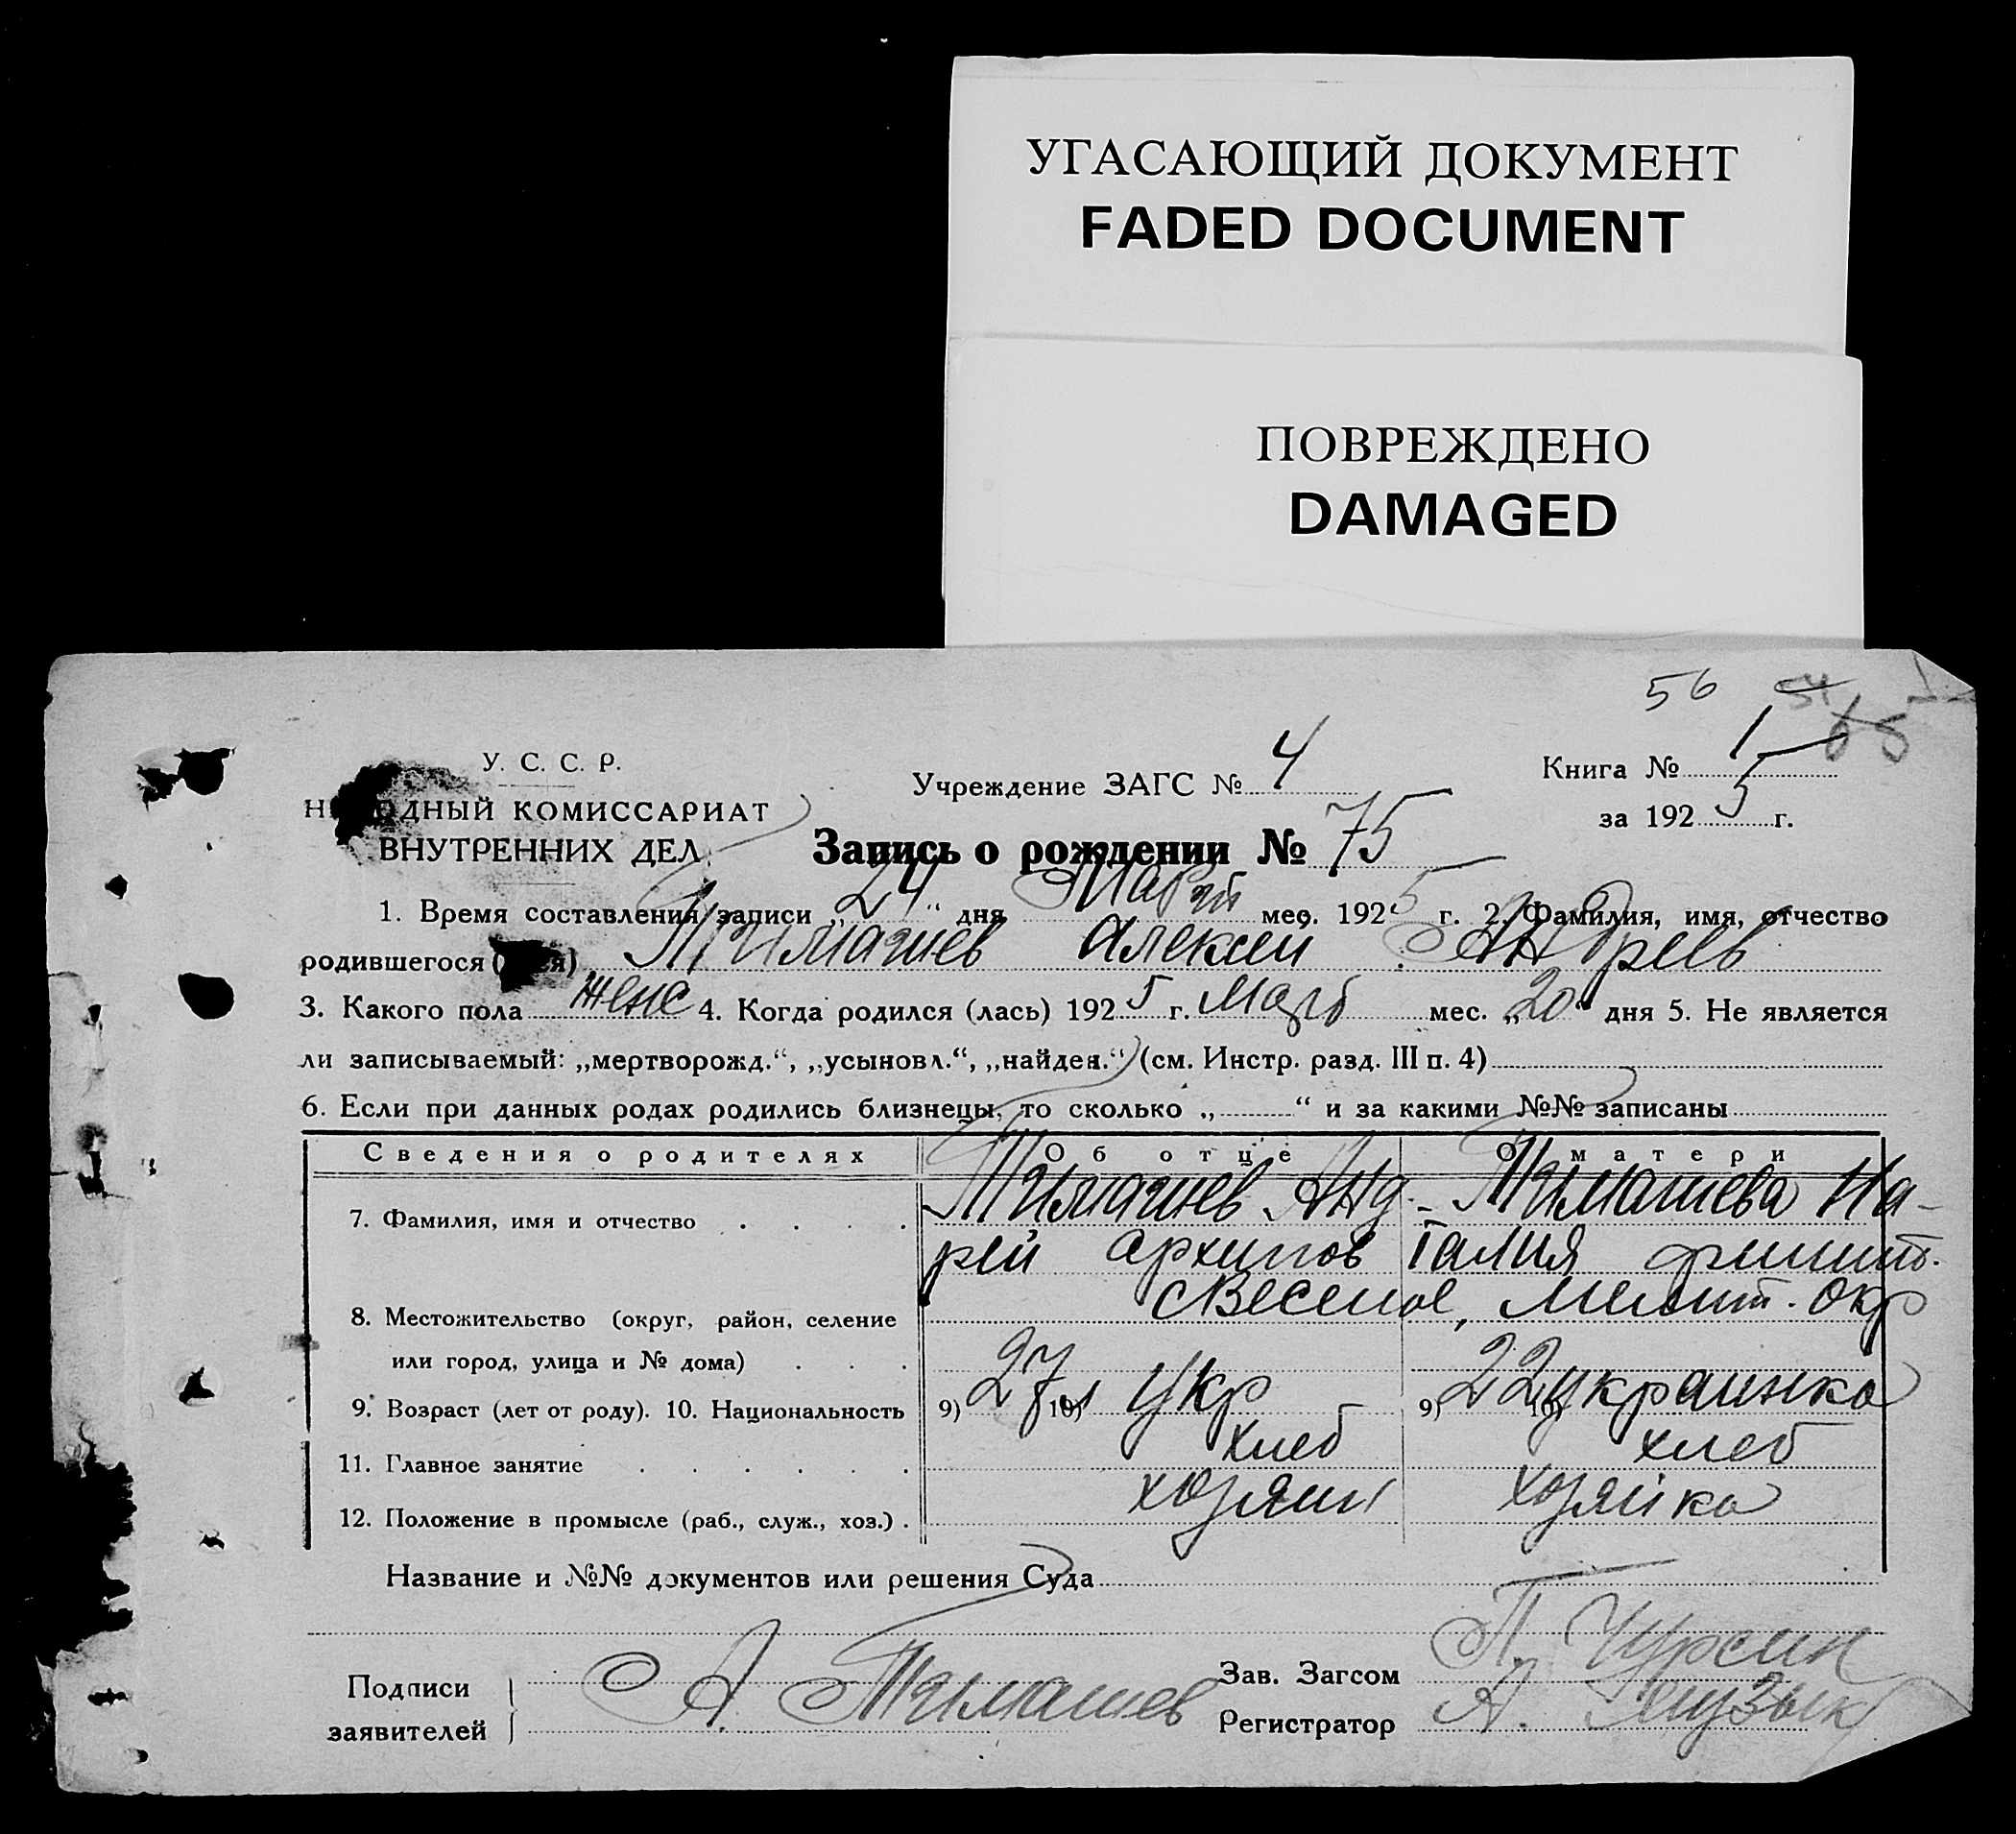 УГАСАЮЩИЙ ДОКУМЕНТ
FADED DOCUMENT
ПОВРЕЖДЕНО
DAMAGED
56 54 65
У. С. С. Р.
Н ОДНЫЙ КОМИССАРИАТ
ВНУТРЕННИХ ДЕЛ.
Учреждение ЗАГС № 4
Книга № 1
за 192 5 г.
Запись о рождении № 75
1. Время составления записи „24“ дня Март мес. 1925 г. 2. Фамилия, имя, отчество
родившегося ( я) Тимашев Алексей Андреев
3. Какого пола женс 4. Когда родился (лась) 192 5 г. Март мес. „20“ дня 5. Не является
ли записываемый: „мертворожд.“, „усыновл.“, „найден.“ (см. Инстр. разд. III п. 4)
6. Если при данных родах родились близнецы, то сколько „ “ и за какими №№ записаны
Сведения о родителях Об отце О матери
7. Фамилия, имя и отчество Тимашев Анд- Тимашева На-
рей Архипов талия филип.
8. Местожительство (округ, район, селение с Веселое, Мелит. окр
или город, улица и № дома)
9. Возраст (лет от роду). 10. Национальность 9) 27 л 10) Укр 9) 22 10) украинка
11. Главное занятие хлеб хлеб
12. Положение в промысле (раб., служ., хоз.) хозяин хозяйка
Название и №№ документов или решения Суда
Подписи
заявителей
А. Тимашев
Зав. Загсом П.
Регистратор А. Музык